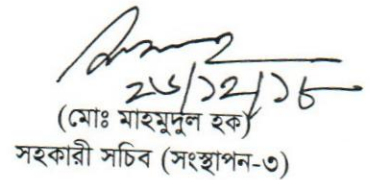 ২৬/১২/১৮
(মোঃ মাহমুদুল হক)
সহকারী সচিব (সংস্থাপন-৩)